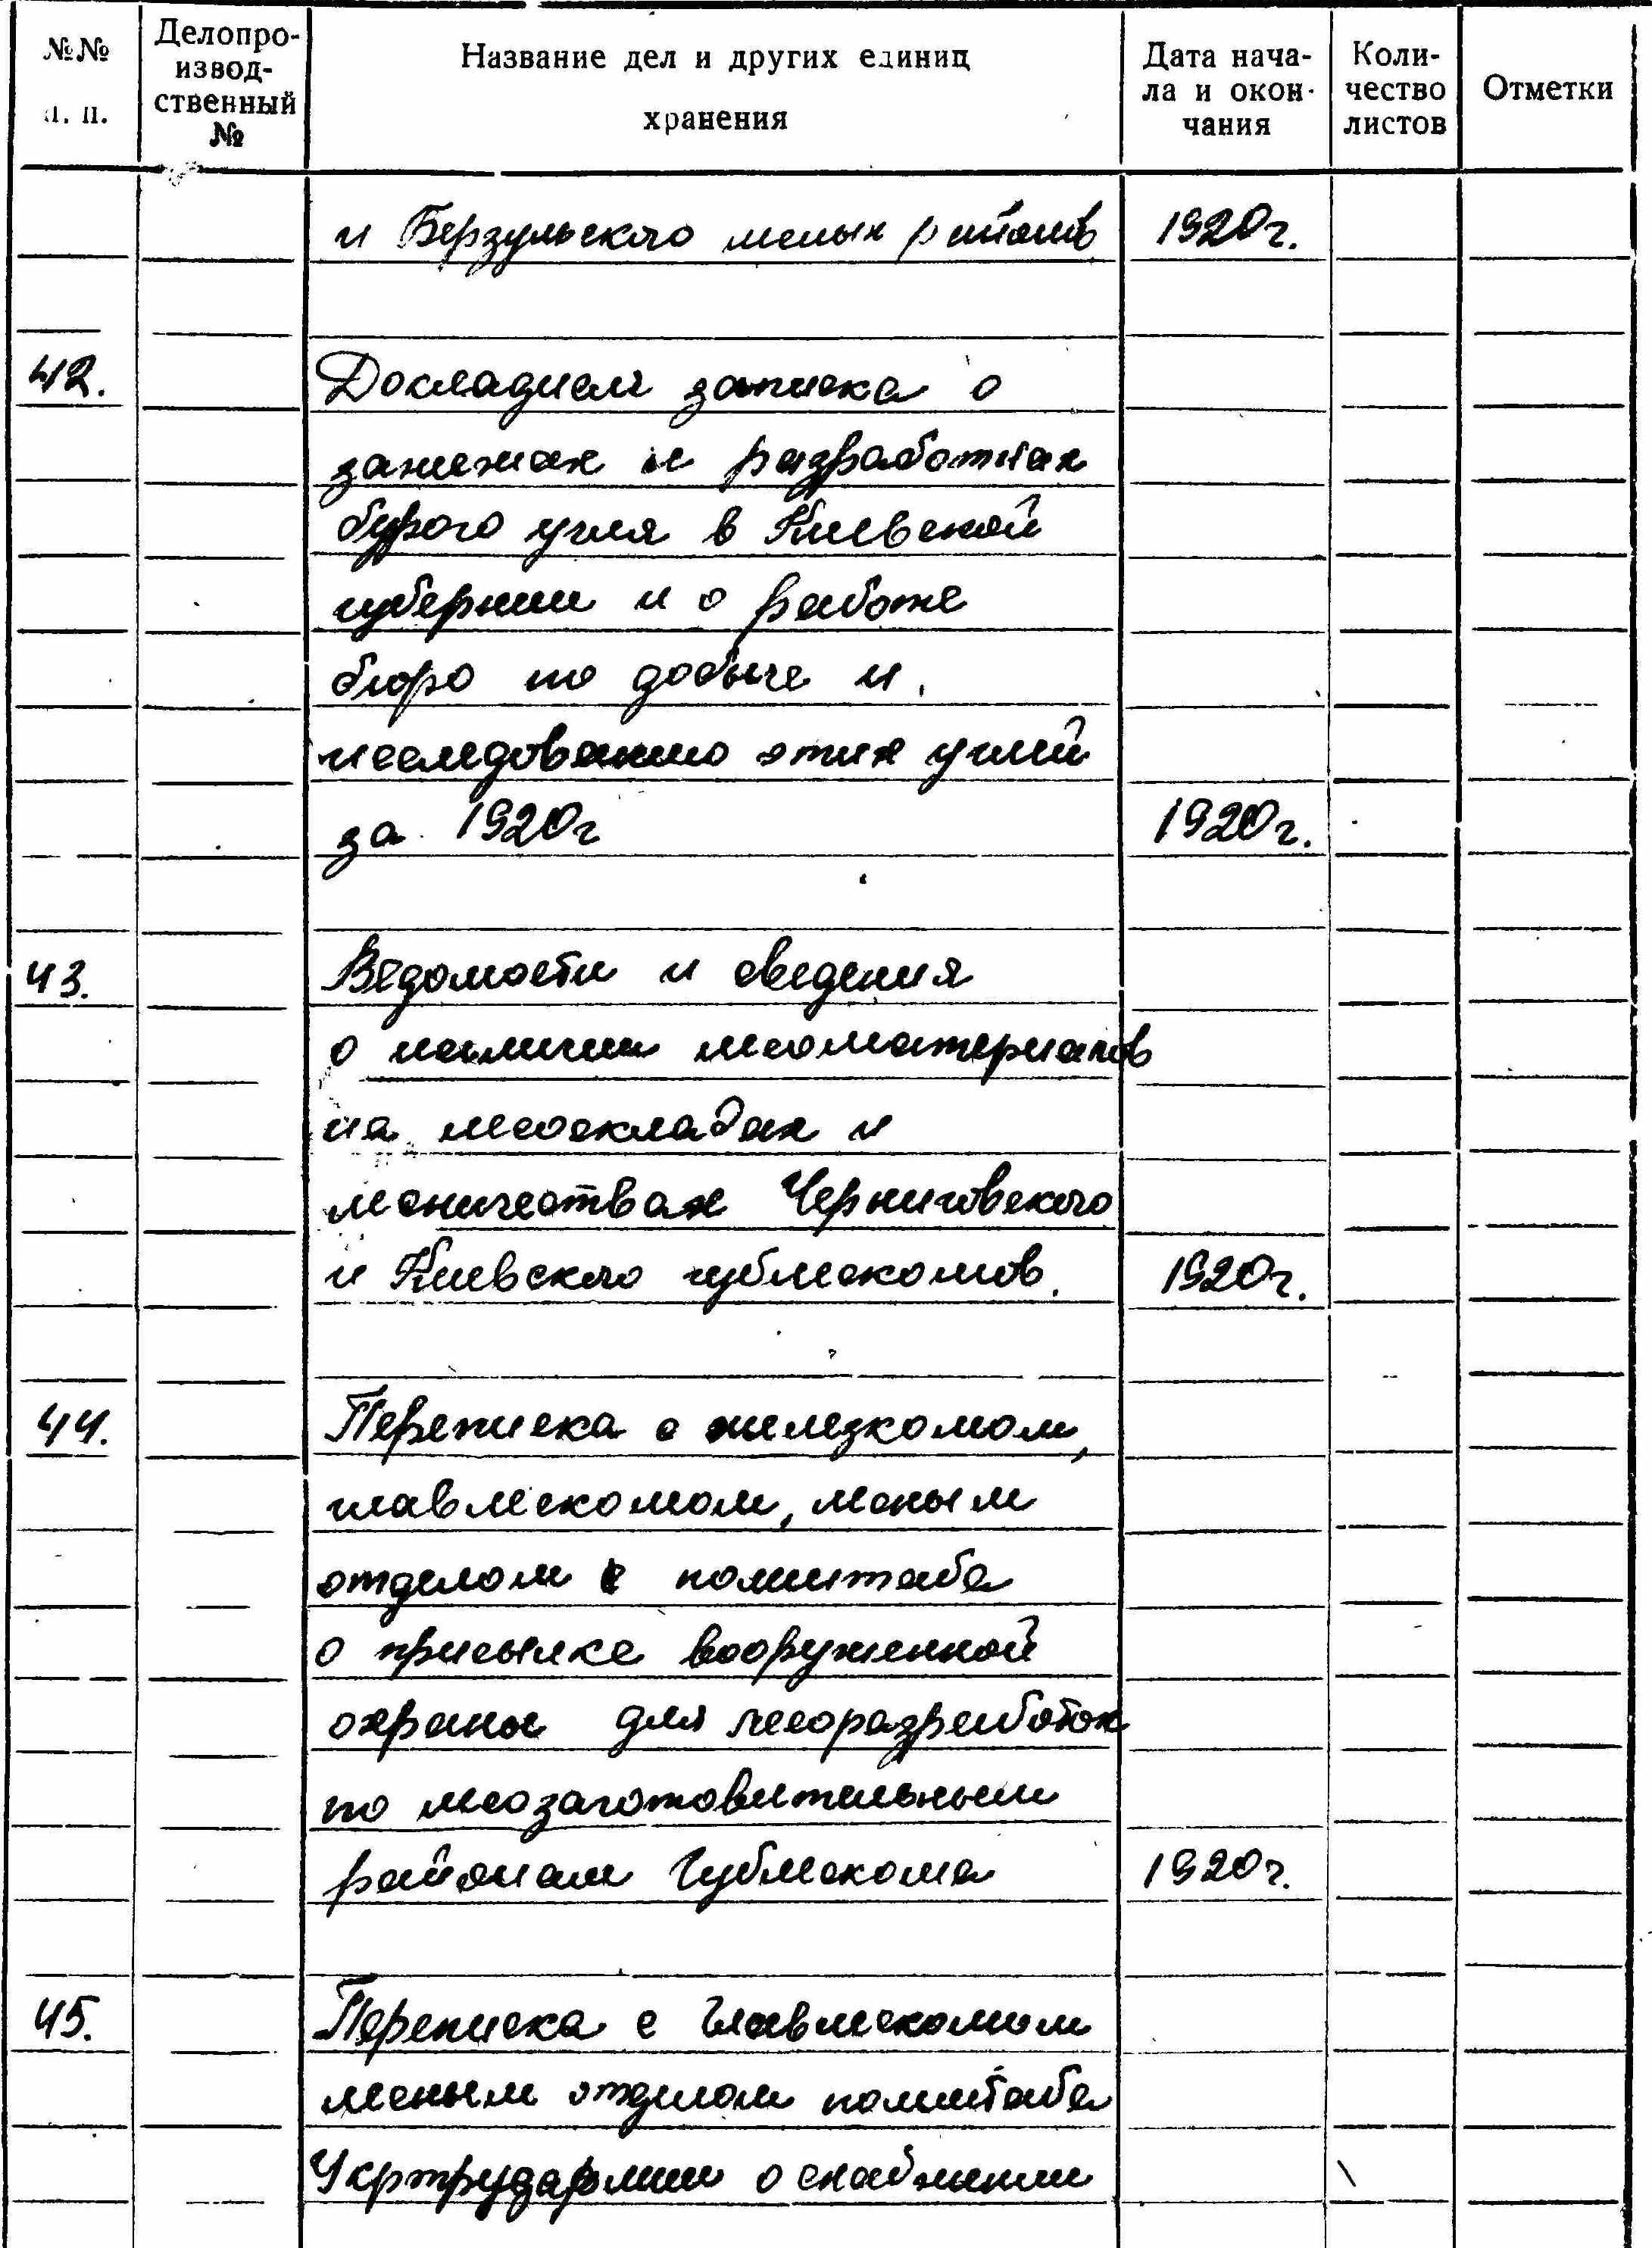 №№ п. п.
Делопро-
извод-
ственный
№
Название дел и других единиц
хранения
Дата нача-
ла и окон-
чания
Коли-
чество
листов
Отметки
и Бирзульского лесных районов 1920г.
42. Докладная записка о
залежах и разработках
бурого угля в Киевской
губернии и о работе
бюро по добыче и
исследованию этих углей
за 1920г 1920г.
43. Ведомости и сведения
о наличии лесоматериалов
на лесоскладах и
лесничествах Черниговского
и Киевского гублескомов. 1920г.
44. Переписка с железкомом,
главлескомом, лесным
отделом полештаба
о присылке вооруженной
охраны для лесоразработок
по лесозаготовительным
районам Гублескома 1920г.
45. Переписка с Главлескомом
лесным отделом полештаба
Укртрудармии о снабжении